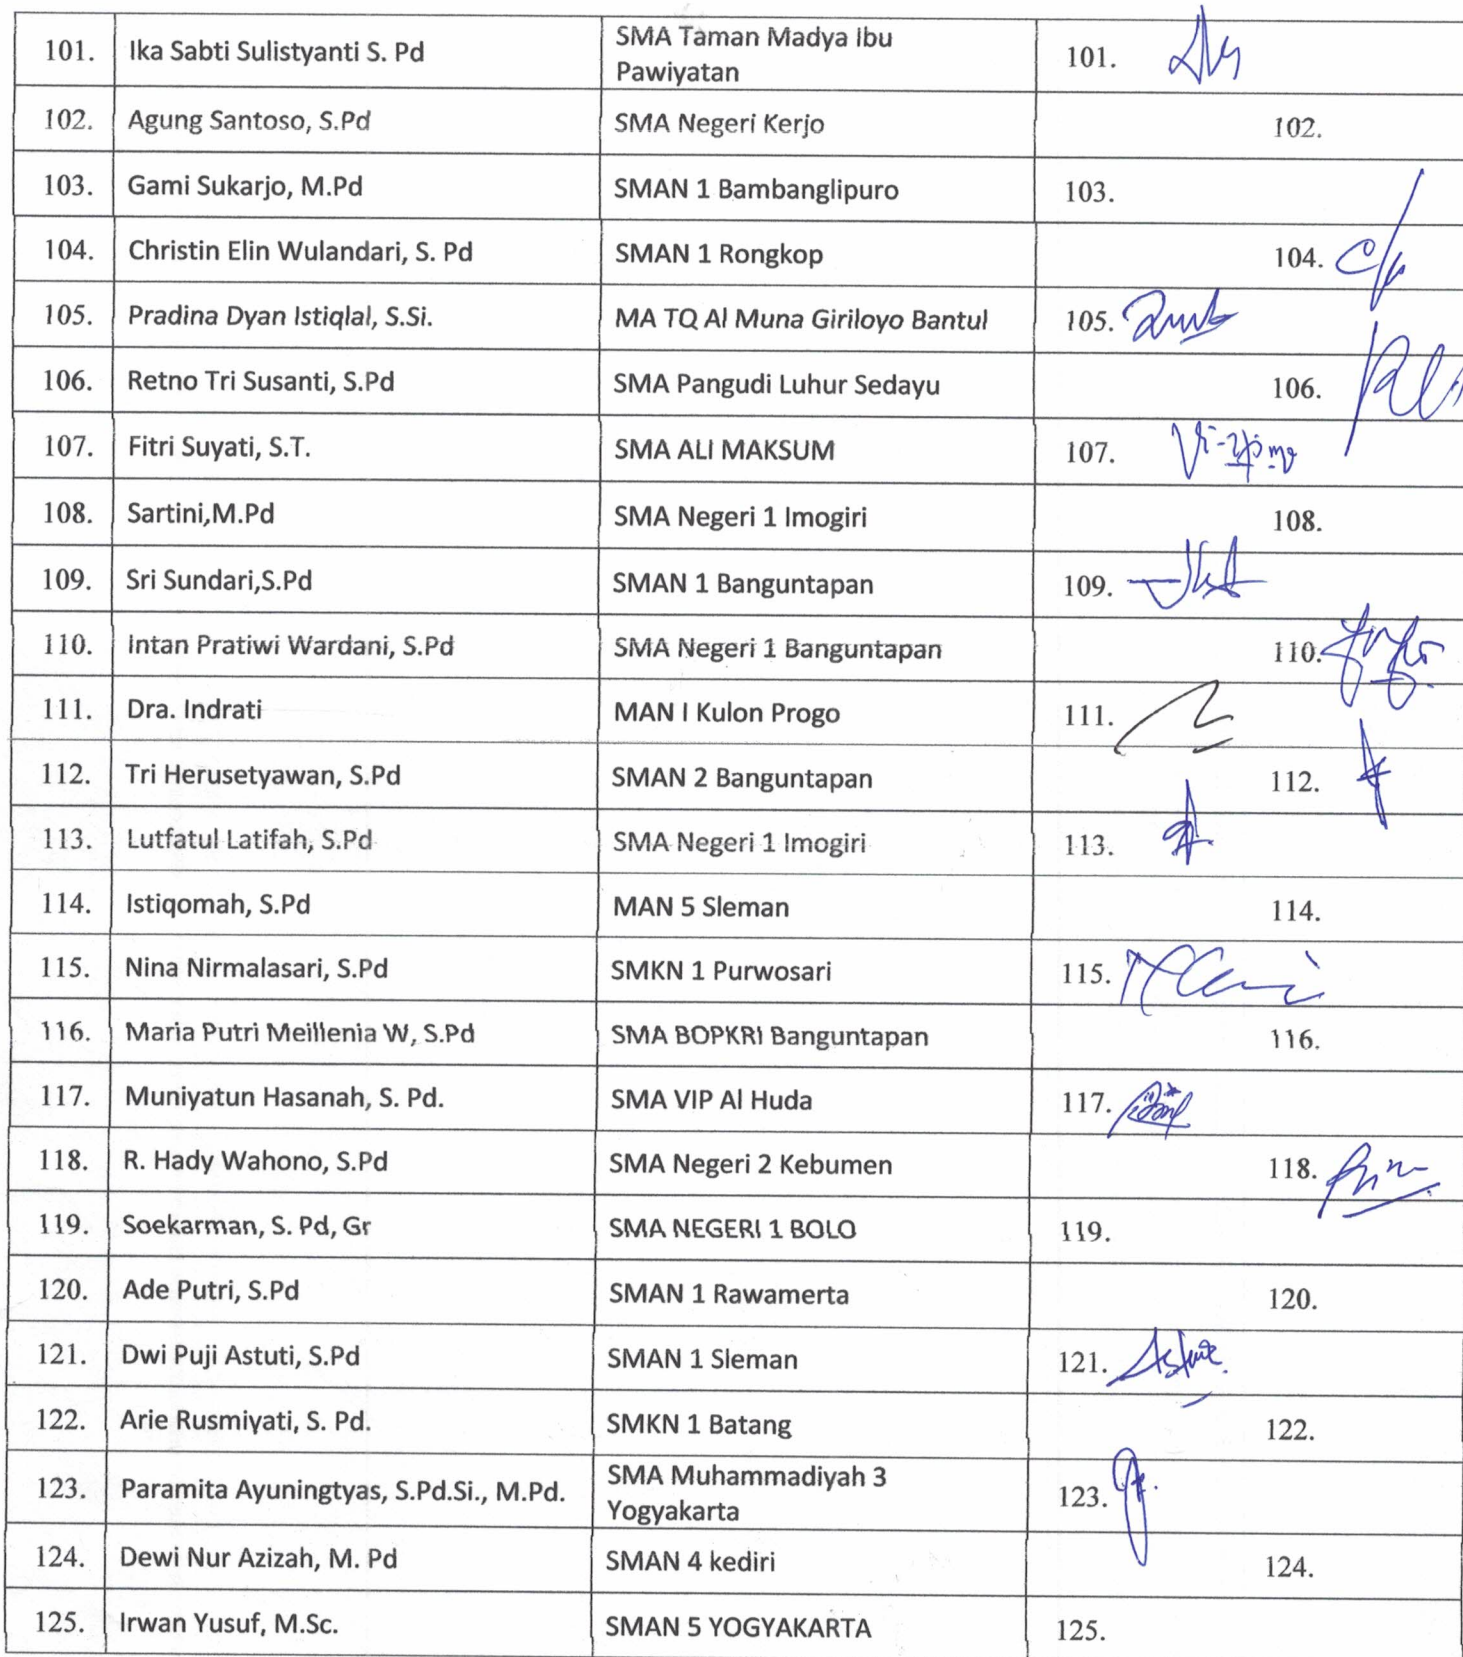 101. Ika Sabti Sulistyanti S. Pd SMA Taman Madya Ibu 101.
Pawiyatan
102. Agung Santoso, S.Pd SMA Negeri Kerjo 102.
103. Gami Sukarjo, M.Pd SMAN 1 Bambanglipuro 103.
104. Christin Elin Wulandari, S. Pd SMAN 1 Rongkop 104.
105. Pradina Dyan Istiqlal, S.Si. MA TQ Al Muna Giriloyo Bantul 105.
106. Retno Tri Susanti, S.Pd SMA Pangudi Luhur Sedayu 106.
107. Fitri Suyati, S.T. SMA ALI MAKSUM 107.
108. Sartini,M.Pd SMA Negeri 1 Imogiri 108.
109. Sri Sundari,S.Pd SMAN 1 Banguntapan 109.
110. Intan Pratiwi Wardani, S.Pd SMA Negeri 1 Banguntapan 110.
111. Dra. Indrati MAN I Kulon Progo 111.
112. Tri Herusetyawan, S.Pd SMAN 2 Banguntapan 112.
113. Lutfatul Latifah, S.Pd SMA Negeri 1 Imogiri 113.
114. Istiqomah, S.Pd MAN 5 Sleman 114.
115. Nina Nirmalasari, S.Pd SMKN 1 Purwosari 115.
116. Maria Putri Meillenia W, S.Pd SMA BOPKRI Banguntapan 116.
117. Muniyatun Hasanah, S. Pd. SMA VIP Al Huda 117.
118. R. Hady Wahono, S.Pd SMA Negeri 2 Kebumen 118.
119. Soekarman, S. Pd, Gr SMA NEGERI 1 BOLO 119.
120. Ade Putri, S.Pd SMAN 1 Rawamerta 120.
121. Dwi Puji Astuti, S.Pd SMAN 1 Sleman 121.
122. Arie Rusmiyati, S. Pd. SMKN 1 Batang 122.
123. Paramita Ayuningtyas, S.Pd.Si., M.Pd. SMA Muhammadiyah 3 123.
Yogyakarta
124. Dewi Nur Azizah, M. Pd SMAN 4 kediri 124.
125. Irwan Yusuf, M.Sc. SMAN 5 YOGYAKARTA 125.